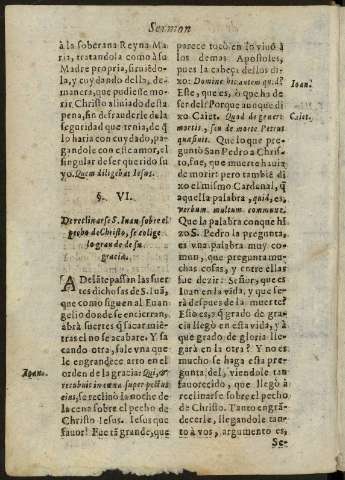 Sermon
à la soberana Reyna Ma-
ria, tratandola como à su
Madre propria, siruiẽdo-
la, y cuydando della, de-
manera, que pudiesse mo-
rir Christo aliuiado desta
pena, sin defraudarle de la
seguridad que tenia, de q̃
lo haria con cuydado, pa-
gandole con este amor, el
singular de ser querido su
yo. Quem diligebat Iesus.
§. VI.
De reclinarse S. Iuan sobre el
pecho de Christo, se colige
lo grande de su
gracia.
ADelãte passan las suer
tes dichosas de S. Iuã,
que como siguen al Euan-
gelio donde se encierran,
abrà suertes q̃ sacar miẽ-
tras el no se acabare. Y sa
cando otra, sale vna que
le engrandece arto en el
orden de la gracia: Qui, &
Ioan.
recubuit in cœna super pectus
eius, se reclinò la noche de
la cena sobre el pecho de
Christo Iesus. Iesus que
fauor! Fue tã grande, que
parece tocò en lo viuo à
los demas Apostoles,
pues la cabeça dellos di-
xo: Domine hic autem quid?
Ioan.
Este, que es, ò que ha de
ser del? Porque aunque di
xo Caiet. Quod de genere
Caiet.
mortis, seu de morte Petrus
quæsiuit. Que lo que pre-
guntò San Pedro a Chris-
to, fue, que muerte hauia
de morir: pero tambiẽ di
xo el mismo Cardenal, q̃
aquella palabra, quid, es,
verbum multum commune.
Que la palabra con que hi
zo S. Pedro la pregunta,
es vna palabra muy co-
mun, que pregunta mu-
chas cosas, y entre ellas
fue dezir: Señor, que es
Iuan en la vida, y que se-
rà despues de la muerte?
Esto es, q̃ grado de gra-
cia llegò en esta vida, y à
que grado de gloria lle-
garà en la otra? Y no es
mucho se haga esta pre-
gunta del, viendole tan
fauorecido, que llegò à
reclinarse sobre el pecho
de Christo. Tanto engrã-
decerle, llegandole tan-
to à vos, argumento es,
Se-